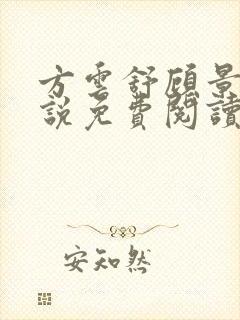 方雲舒顧景
説免費閱讀
安知然